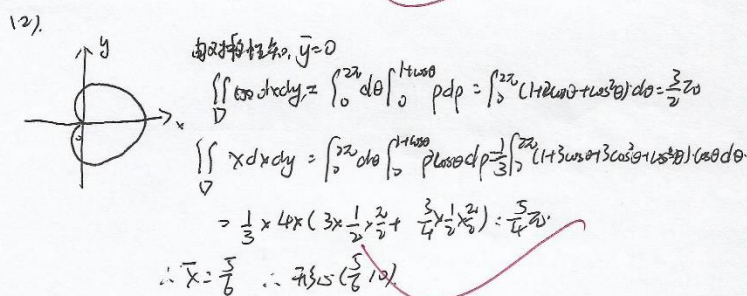 (2).
y
x
由对称性知, ȳ=0
∬_D dxdy = ∫_0^{2π} dθ ∫_0^{1+cosθ} ρdρ = ∫_0^{2π} (1+2cosθ+cos²θ) dθ = 3/2 π
∬_D xdxdy = ∫_0^{2π} dθ ∫_0^{1+cosθ} ρ²cosθdρ = 1/3 ∫_0^{2π} (1+3cosθ+3cos²θ+cos³θ)cosθdθ
= 1/3 × 4 × (3×1/2×π/2 + 3/4×1/2×π/2) = 5/4 π.
∴ x̄ = 5/6 ∴ 形心(5/6, 0).